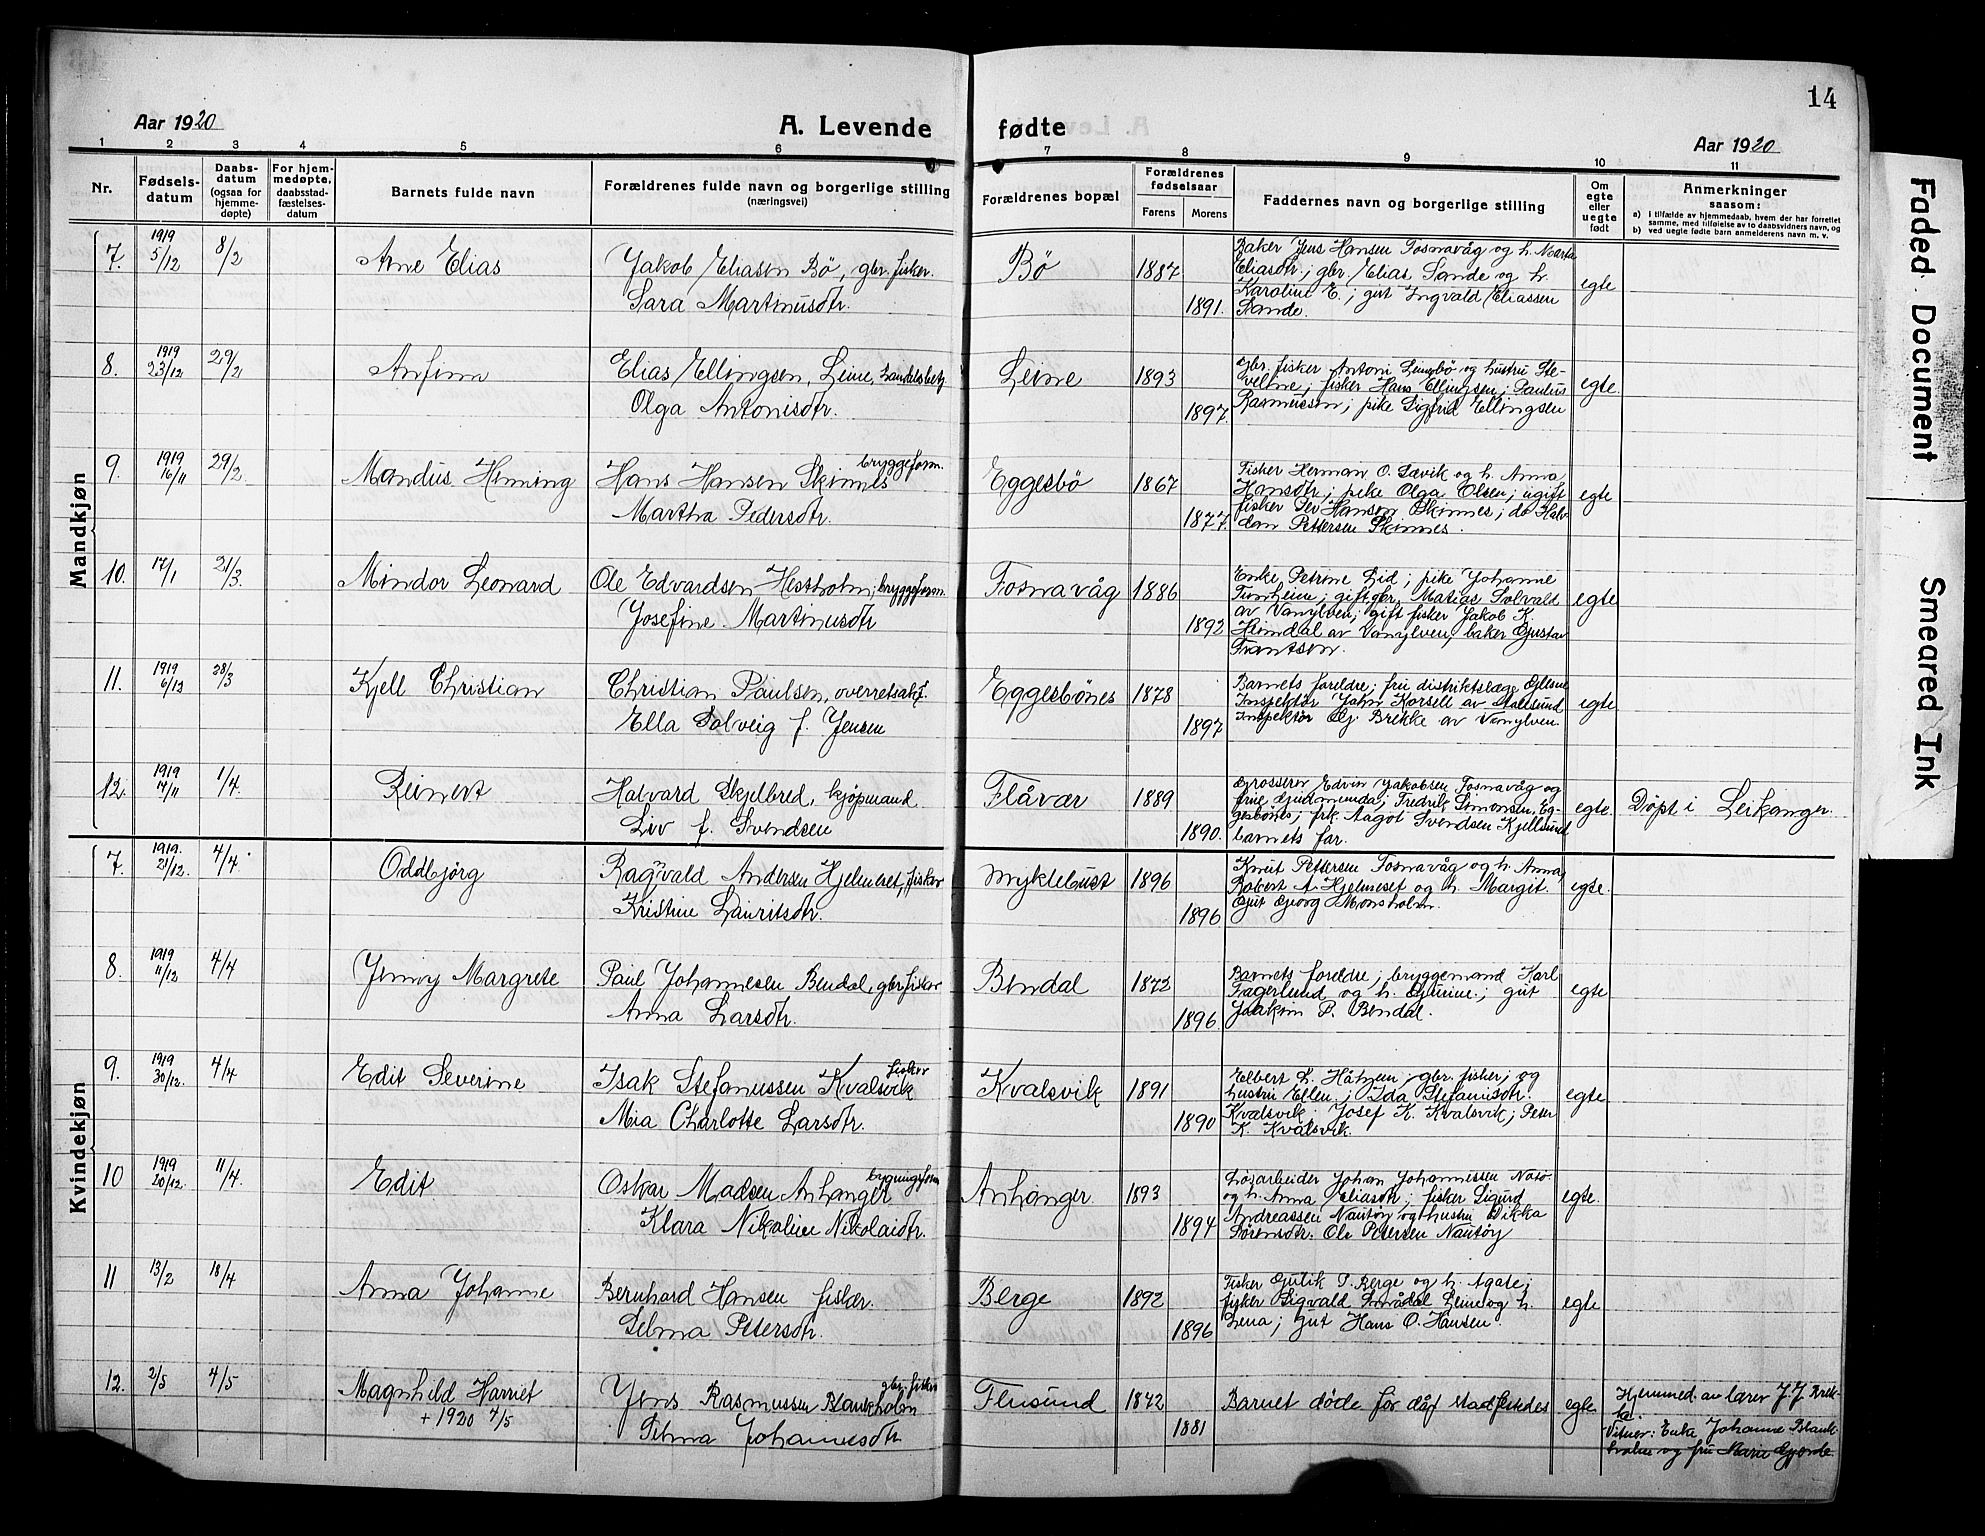 14
Aar 1920
A. Levende fødte
Aar 1920
1 2 3 4 5 6 7 8 9 10 11
Nr.
Fødsels-
datum
Daabs-
datum
(ogsaa for
hjemme-
døpte)
For hjem-
medøpte,
daabsstad-
fæstelses-
datum
Barnets fulde navn
Forældrenes fulde navn og borgerlige stilling
(næringsvei)
Forældrenes bopæl
Forældrenes
fødselsaar
Farens Morens
Faddernes navn og borgerlige stilling
Om
egte
eller
uegte
født
Anmerkninger
saasom:
a) i tilfælde av hjemmedaab, hvem der har forrettet
samme, med tilføielse av to daabsvidners navn, og
b) ved uegte fødte barn anmelderens navn m. v.
Mandkjøn
7. 1919 5/12 8/2 Arne Elias
Jakob Eliasen Bø, gbr. fisker.
Sara Martinusdtr.
Bø 1887 1891.
Baker Jens Hansen Fosnavåg og h. Marta
Eliasdtr.; gbr. Elias Sande og h.
Karoline E.; gut Ingvald Eliassen
Sande.
egte
8. 1919 23/12 29/2 Anfinn
Elias Ellingsen, Leine,
Olga Antonisdtr.
Leine 1893 1897.
gbr. fisker Antoni Leinebø og hustru Ste-
; fisker Hans Ellingsen; Paulus
Rasmussen; pike Sigfrid Ellingsen
egte.
9. 1919 16/11 29/2 Mandus Henning
Hans Hansen Skinnes bryggeform.
Martha Pedersdtr.
Eggesbø 1867 1877.
Fisker Herman O. Sævik og h. Anna
Hansdtr; pike Olga Olsen; ugift
fisker Per Hansen Skinnes; do Halv-
dan Pettersen Skinnes.
egte
10. 17/1 21/3 Mindor Leonard
Ole Edvardsen Hestholm, bryggeform.
Josefine Martinusdtr
Fosnavåg 1886 1892
Enke Petrine Lid; pike Johanne
; gift gbr. Matias Solvald
av Vanylven; gift fisker Jakob K.
Heimdal av Vanylven, baker Gustav
Frantsen.
egte
11. 1919 6/12 28/3 Kjell Christian
Christian Paulsen, overretsakf.
Ella Solveig f. Jensen
Eggesbønes 1878 1897
Barnets foreldre; fru distriktslæge
Inspektør John Korsell av
Inspektør Brekke av Vanylven.
egte
12. 1919 14/11 1/4. Reinert
Halvard Skjelbred, kjøpmand.
Liv f. Svendsen
Flåvær 1889 1890.
Grosserer Edvin Jakobsen Fosnavåg og
frue Gudmunda; Fredrik Simonsen, Eg-
gesbønes; frk. Aagot Svendsen Kjellsund
barnets far.
egte. Døpt i Leikanger
Kvindekjøn
7. 1919. 21/12. 4/4. Oddbjørg
Ragnvald Andersen Hjelmeset, fisker
Kristine Lauritsdtr.
Myklebust 1896 1896.
Knut Pettersen Fosnavåg og h. Anna,
Robert A. Hjelmeset og h. Margit.
Gut Georg Monsholm.
egte.
8. 1919 11/12 4/4 Jenny Margrete
Paul Johannesen Bendal, gbr. fisker
Anna Larsdtr.
Bendal 1872 1896.
Barnets foreldre; bryggemand Karl
Fagerlund og h. Gurine; gut
Joakim P. Bendal.
egte
9. 1919 30/12. 4/4 Edit Severine
Isak Stefanussen Kvalsvik fisker
Mia Charlotte Larsdtr.
Kvalsvik 1891 1890
Elbert L. gbr. fisker; og
hustru Ellen; Ida Stefanusdtr.
Kvalsvik. Josef K. Kvalsvik; Peter
K. Kvalsvik.
egte
10 1919 20/12. 11/4. Edit
Oskar Madsen Anhanger bygningsform
Klara Nikoline Nikolaidtr.
Anhanger. 1893 1894
Løsarbeider Johan Johannessen
og h. Anna Eliasdtr; fisker Sigurd
Andreassen Nautøy og hustru Rikka
Sørensdtr. Ole Petersen Nautøy
egte.
11 13/2 18/4 Anna Johanne
Bernhard Hansen fisker.
Selma Petersdtr.
Berge 1892 1896
Fisker Gutik P. Berge og h. Agate;
fisker Sigvald Leine og h.
Lena; gut Hans O. Hansen.
egte
12. 2/5 4/5 Magnhild Harriet
+ 1920 4/5
Jens Rasmussen Blankholm gbr. fisker
Selma Johannesdtr
Flusund 1872 1881
Barnet døde før dåp stadfestedes egte
Hjemmed. av lærer J. J. Brek-
ke.
Vitner: Enke Johanne Blank-
holm og fru Marie Gjerde
Faded Document
Smeared Ink